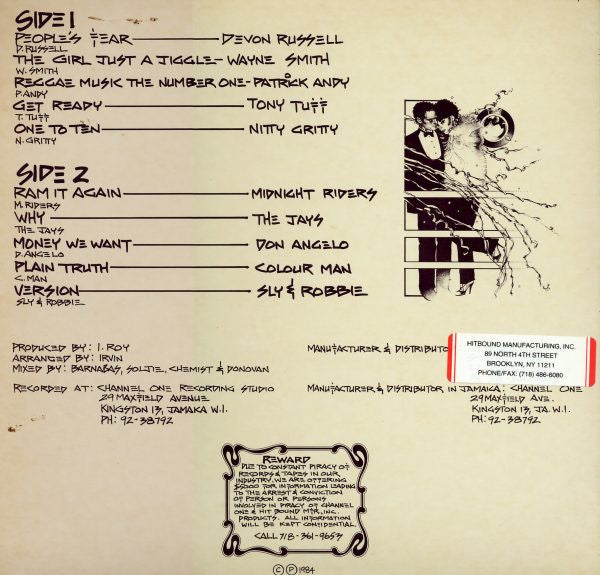 SIDE 1
PEOPLE'S FEAR — DEVON RUSSELL
D. RUSSELL
THE GIRL JUST A JIGGLE - WAYNE SMITH
W. SMITH
REGGAE MUSIC THE NUMBER ONE - PATRICK ANDY
P. ANDY
GET READY — TONY TUFF
T. TUFF
ONE TO TEN — NITTY GRITTY
N. GRITTY
SIDE 2
RAM IT AGAIN — MIDNIGHT RIDERS
M. RIDERS
WHY — THE JAYS
THE JAYS
MONEY WE WANT — DON ANGELO
D. ANGELO
PLAIN TRUTH — COLOUR MAN
C. MAN
VERSION — SLY & ROBBIE
SLY & ROBBIE
PRODUCED BY: I. ROY
ARRANGED BY: IRVIN
MIXED BY: BARNABAS, SOLJIE, CHEMIST & DONOVAN
RECORDED AT: CHANNEL ONE RECORDING STUDIO
29 MAXFIELD AVENUE
KINGSTON 13, JAMAKA W.I.
PH: 92-38792
MANUFACTURER & DISTRIBUTO
HITBOUND MANUFACTURING, INC.
89 NORTH 4TH STREET
BROOKLYN, NY 11211
PHONE/FAX: (718) 486-6080
MANUFACTURER & DISTRIBUTOR IN JAMAICA: CHANNEL ONE
29 MAXFIELD AVE.
KINGSTON 13, JA. W.I.
PH: 92-38792
REWARD
DUE TO CONSTANT PIRACY OF
RECORDS & TAPES IN OUR
INDUSTRY, WE ARE OFFERING
$5000 FOR INFORMATION LEADING
TO THE ARREST & CONVICTION
OF PERSON OR PERSONS
INVOLVED IN PIRACY OF CHANNEL
ONE & HIT BOUND MFR, INC.
PRODUCTS. ALL INFORMATION
WILL BE KEPT CONFIDENTIAL
CALL 718-361-9653
© ℗ 1984